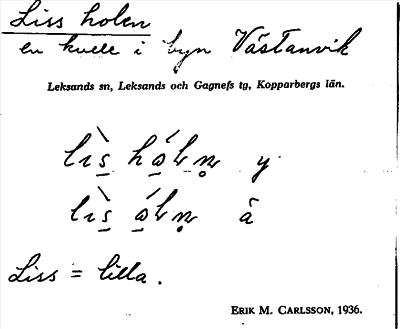 Liss holen
en kulle i byn Västanvik
Leksands sn, Leksands och Gagnefs tg, Kopparbergs län.
lìs hóln y
lìs óln ä
Liss = lilla.
ERIK M. CARLSSON, 1936.